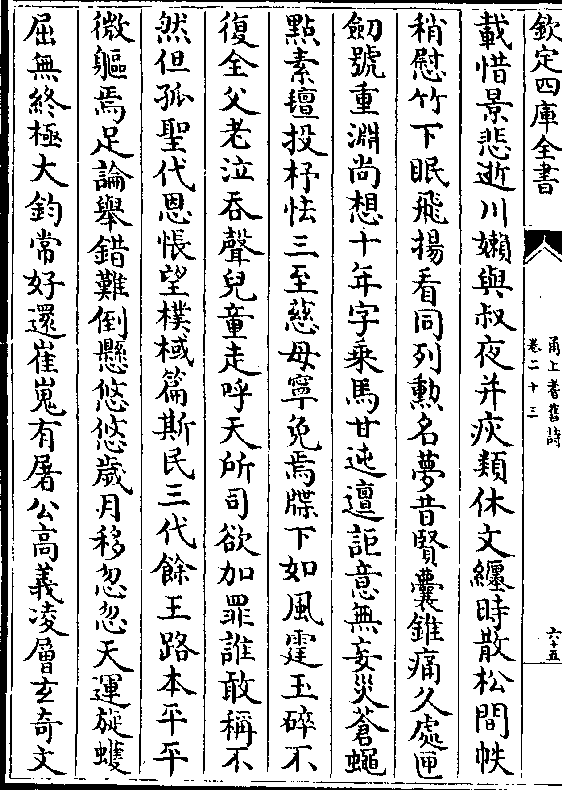 欽定四庫全書
甬上耆舊詩
卷二十三
六十五
載惜景悲逝川嬾與叔夜并疾類休文纒時散松間帙
稍慰竹下眠飛揚看同列勲名夢昔賢囊錐痛久處匣
劒號重淵尚想十年字乘馬甘迍邅詎意無妄災蒼蠅
點素璮投杼怯三至慈母寧免焉牒下如風霆玉碎不
復全父老泣吞聲兒童走呼天所司欲加罪誰敢稱不
然但孤聖代恩悵望樸棫篇斯民三代餘王路本平平
微軀焉足論舉錯難倒懸悠悠歲月移忽忽天運旋蠖
屈無終極大鈞常好還崔嵬有屠公高義凌層玄奇文